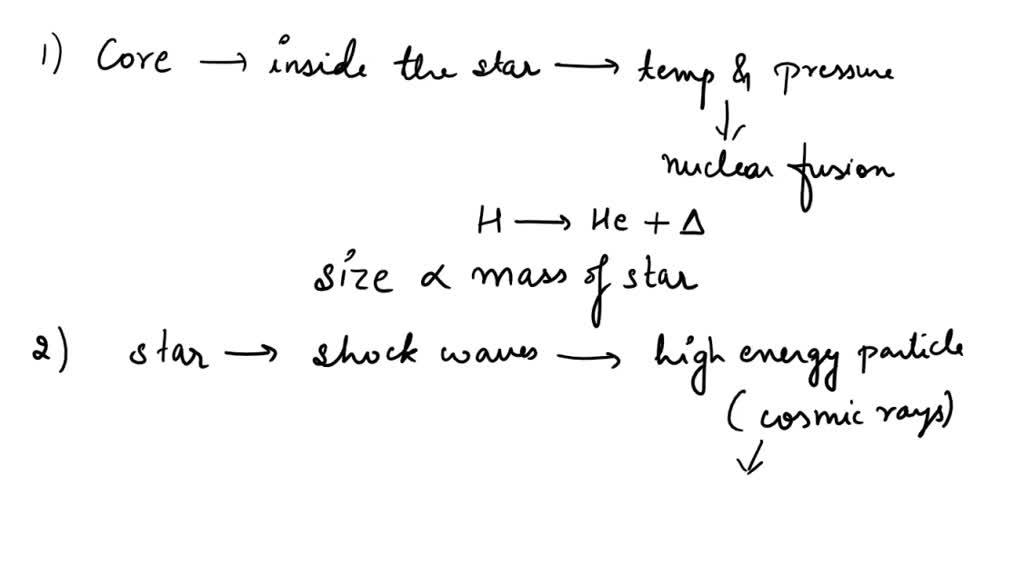 1) Core → inside the star → temp & pressure
↓
nuclear fusion
H → He + Δ
size ∝ mass of star
2) star → shock waves → high energy particle
(cosmic rays)
↓